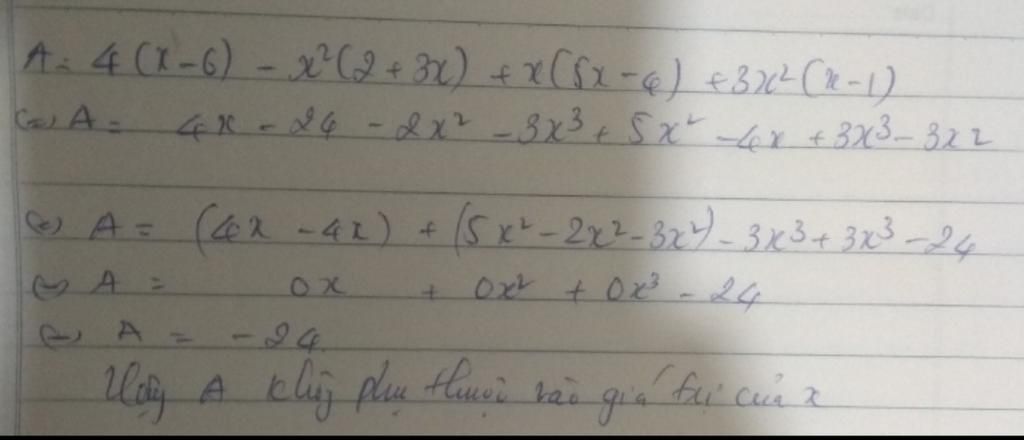 A = 4(x-6) - x²(2+3x) + x(5x-4) + 3x²(x-1)
(=) A = 4x - 24 - 2x² - 3x³ + 5x² - 4x + 3x³ - 3x²
(=) A = (4x - 4x) + (5x² - 2x² - 3x²) - 3x³ + 3x³ - 24
(=) A = 0x + 0x² + 0x³ - 24
(=) A = -24
Vậy A không phụ thuộc vào giá trị của x